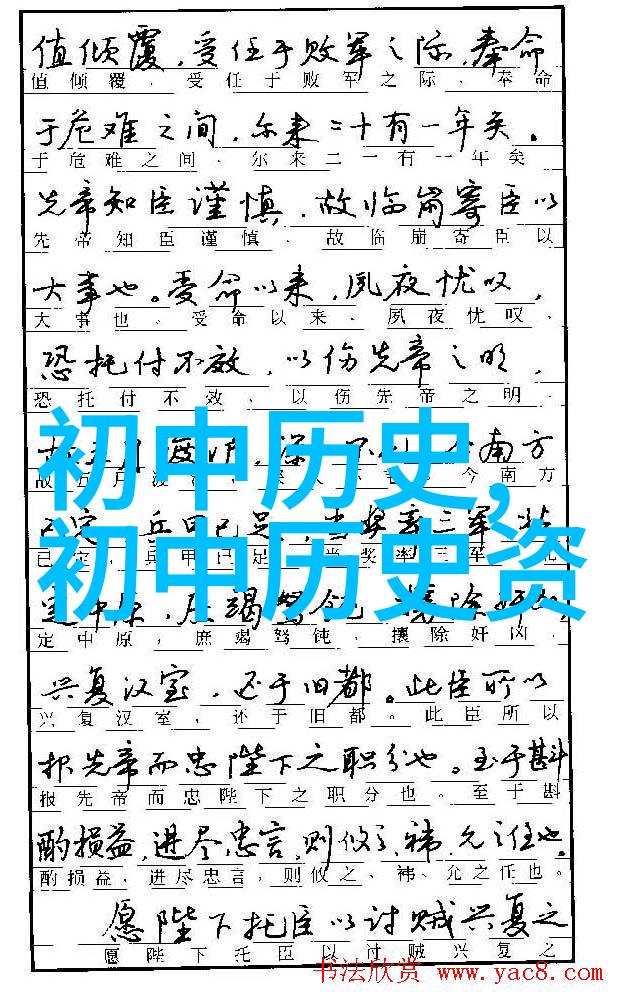 值倾覆，受任于败军之际，奉命
值倾覆，受任于败军之际，奉命
于危难之间，尔来二十有一年矣。
于危难之间，尔来二一有一年矣
先帝知臣谨慎，故临崩寄臣以
先帝知臣谨慎，故临崩寄臣以
大事也。受命以来，夙夜忧叹，
大事也。受命以来，夙夜忧叹，
恐托付不效，以伤先帝之明，
恐托付不效，以伤先帝之明，
初中历史,
南方
故五月渡 今南方
已定，兵甲已足，当奖率三军
已定，兵甲已足，当奖率三军
初中历史资
定中原，庶竭驽钝，攘除奸凶，
定中原，庶竭驽钝，攘除奸凶，
兴复汉室，还于旧都。此臣所以
兴复汉室，还于旧都。此臣所以
报先帝而忠陛下之职分也。至于斟
报先帝而忠陛下之职分也。至于斟
酌损益，进尽忠言，则攸之、祎、允之任也。
酌损益，进尽忠言，则攸之、祎、允之任也。
愿陛下托臣以讨贼兴复之
愿陛下托臣以讨贼兴复之
书法欣赏 www.yac8.com